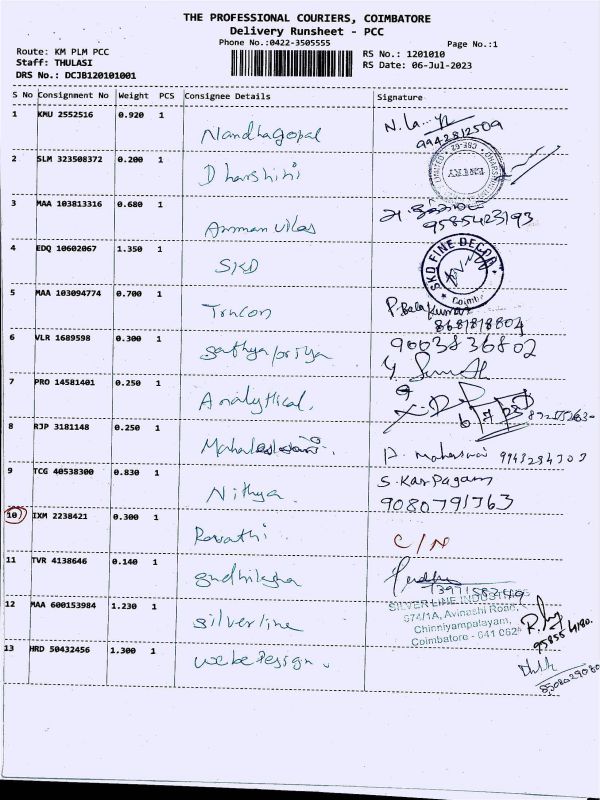 THE PROFESSIONAL COURIERS, COIMBATORE
Delivery Runsheet - PCC
Phone No.:0422-3505555
Page No.:1
Route: KM PLM PCC
RS No.: 1201010
Staff: THULASI
RS Date: 06-Jul-2023
DRS No.: DCJB120101001
S No Consignment No Weight PCS Consignee Details Signature
1 KMU 2552516 0.920 1 Nandhagopal
9942812509
2 SLM 323508372 0.200 1 Dharshini
3 MAA 103813316 0.680 1 Amman vilas
9585423193
4 EDQ 10602067 1.350 1 SKD
SKD FINE DECOR
Coimb
5 MAA 103094774 0.700 1 Trucon P. Bala Kumar
8681818804
6 VLR 1689598 0.300 1 Sathyapriya 9003836802
7 PRO 14581401 0.250 1 Analytical.
6/7/23
8 RJP 3181148 0.250 1
9 TCG 40538300 0.830 1 Nithya. S. Karpagam
9080791763
10 IXM 2238421 0.300 1 Revathi C/N
11 TVR 4138646 0.140 1
12 MAA 600153984 1.230 1 Silverline
SILVER LINE INDUSTRIES
674/1A, Avinashi Road,
Chinniyampalayam,
Coimbatore - 641 062
13 HRD 50432456 1.300 1
8508029080